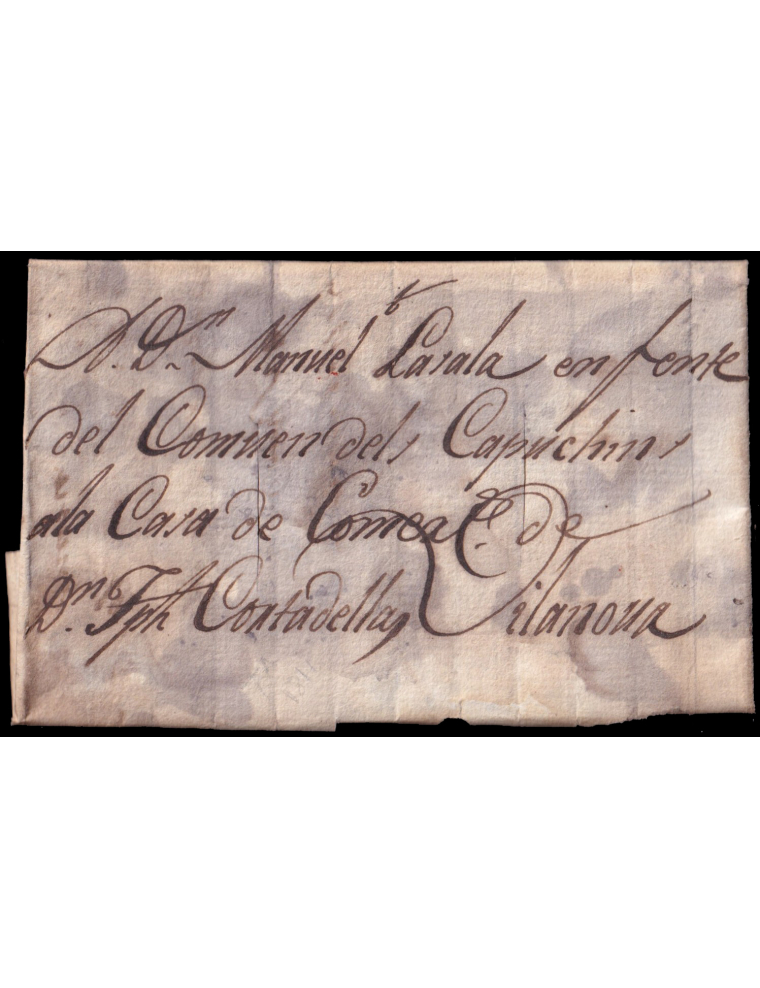 A. Dn. Manuel Lasala enfrente
del Comuen dels Capuchins
ala Casa de Comerco. de
Dn. Jph Cortadellas Vilanoua